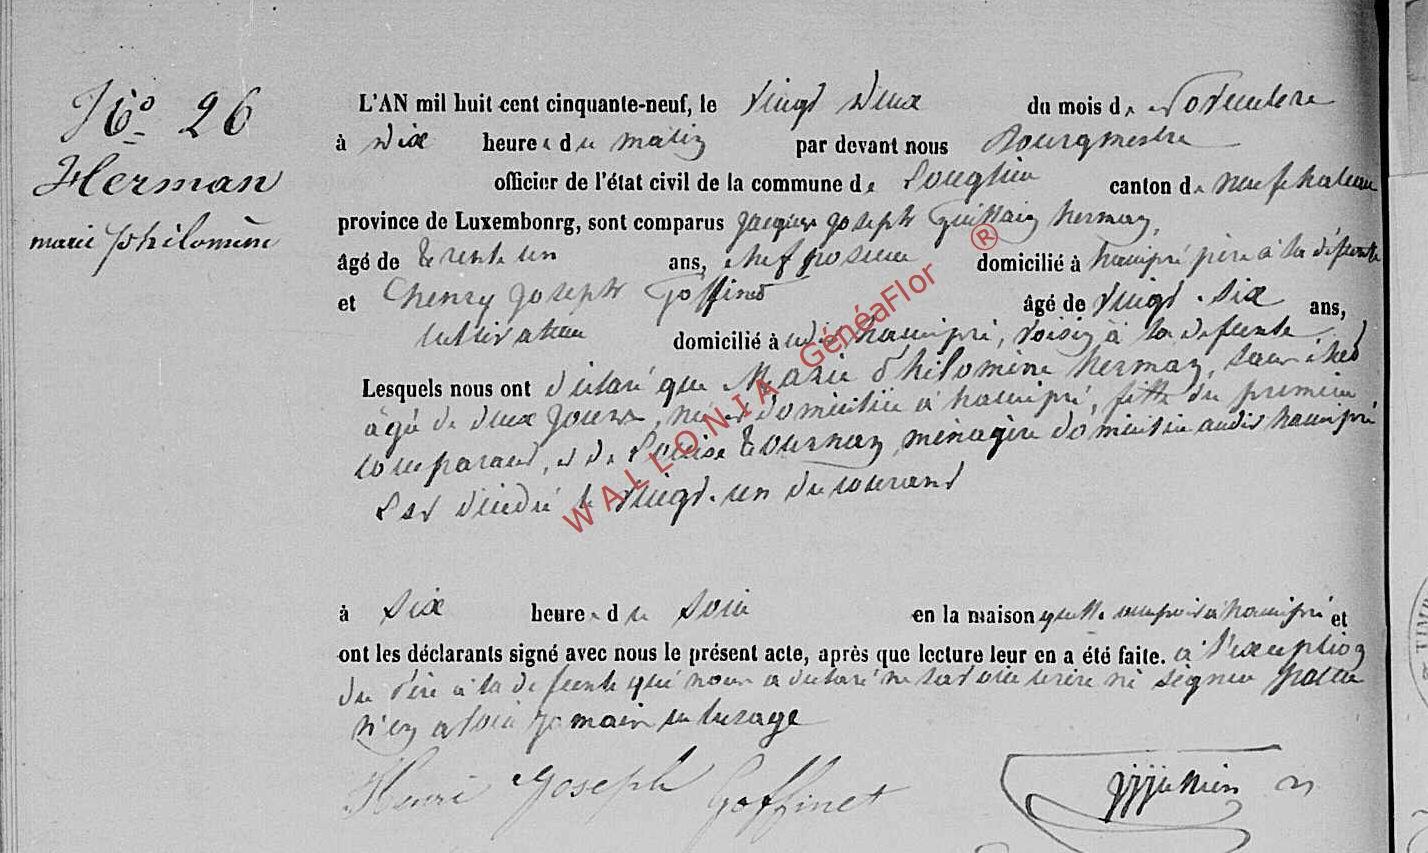 No 26
Herman
marie philomène
L'AN mil huit cent cinquante-neuf, le vingt deux du mois de Novembre
à dix heures du matin par devant nous Bourgmestre
officier de l'état civil de la commune de Longlier canton de neufchateau
province de Luxembourg, sont comparus jacques joseph Guillain herman,
âgé de trente un ans, chef poseur domicilié à hamipré père à la défunte
et henry joseph Goffinet âgé de vingt-six ans,
cultivateur domicilié à udit hamipré, voisin à la defunte,
Lesquels nous ont déclaré que Marie Philomène herman, sans état
agé de deux jours, né et domiciliée à hamipré, fille du premier
comparant, et de Louise Tournay ménagère domiciliée audit hamipré
est décédé le vingt-un du courant
à six heures du soir en la maison quelle occupoit à hamipré et
ont les déclarants signé avec nous le présent acte, après que lecture leur en a été faite. à l'exception
du père à la defunte qui nous a déclaré ne savoir ecrire ni signer pour
n'en avoir jamais eu lusage
Henri Joseph Goffinet
WALLONIA GénéaFlor ®
TIMB